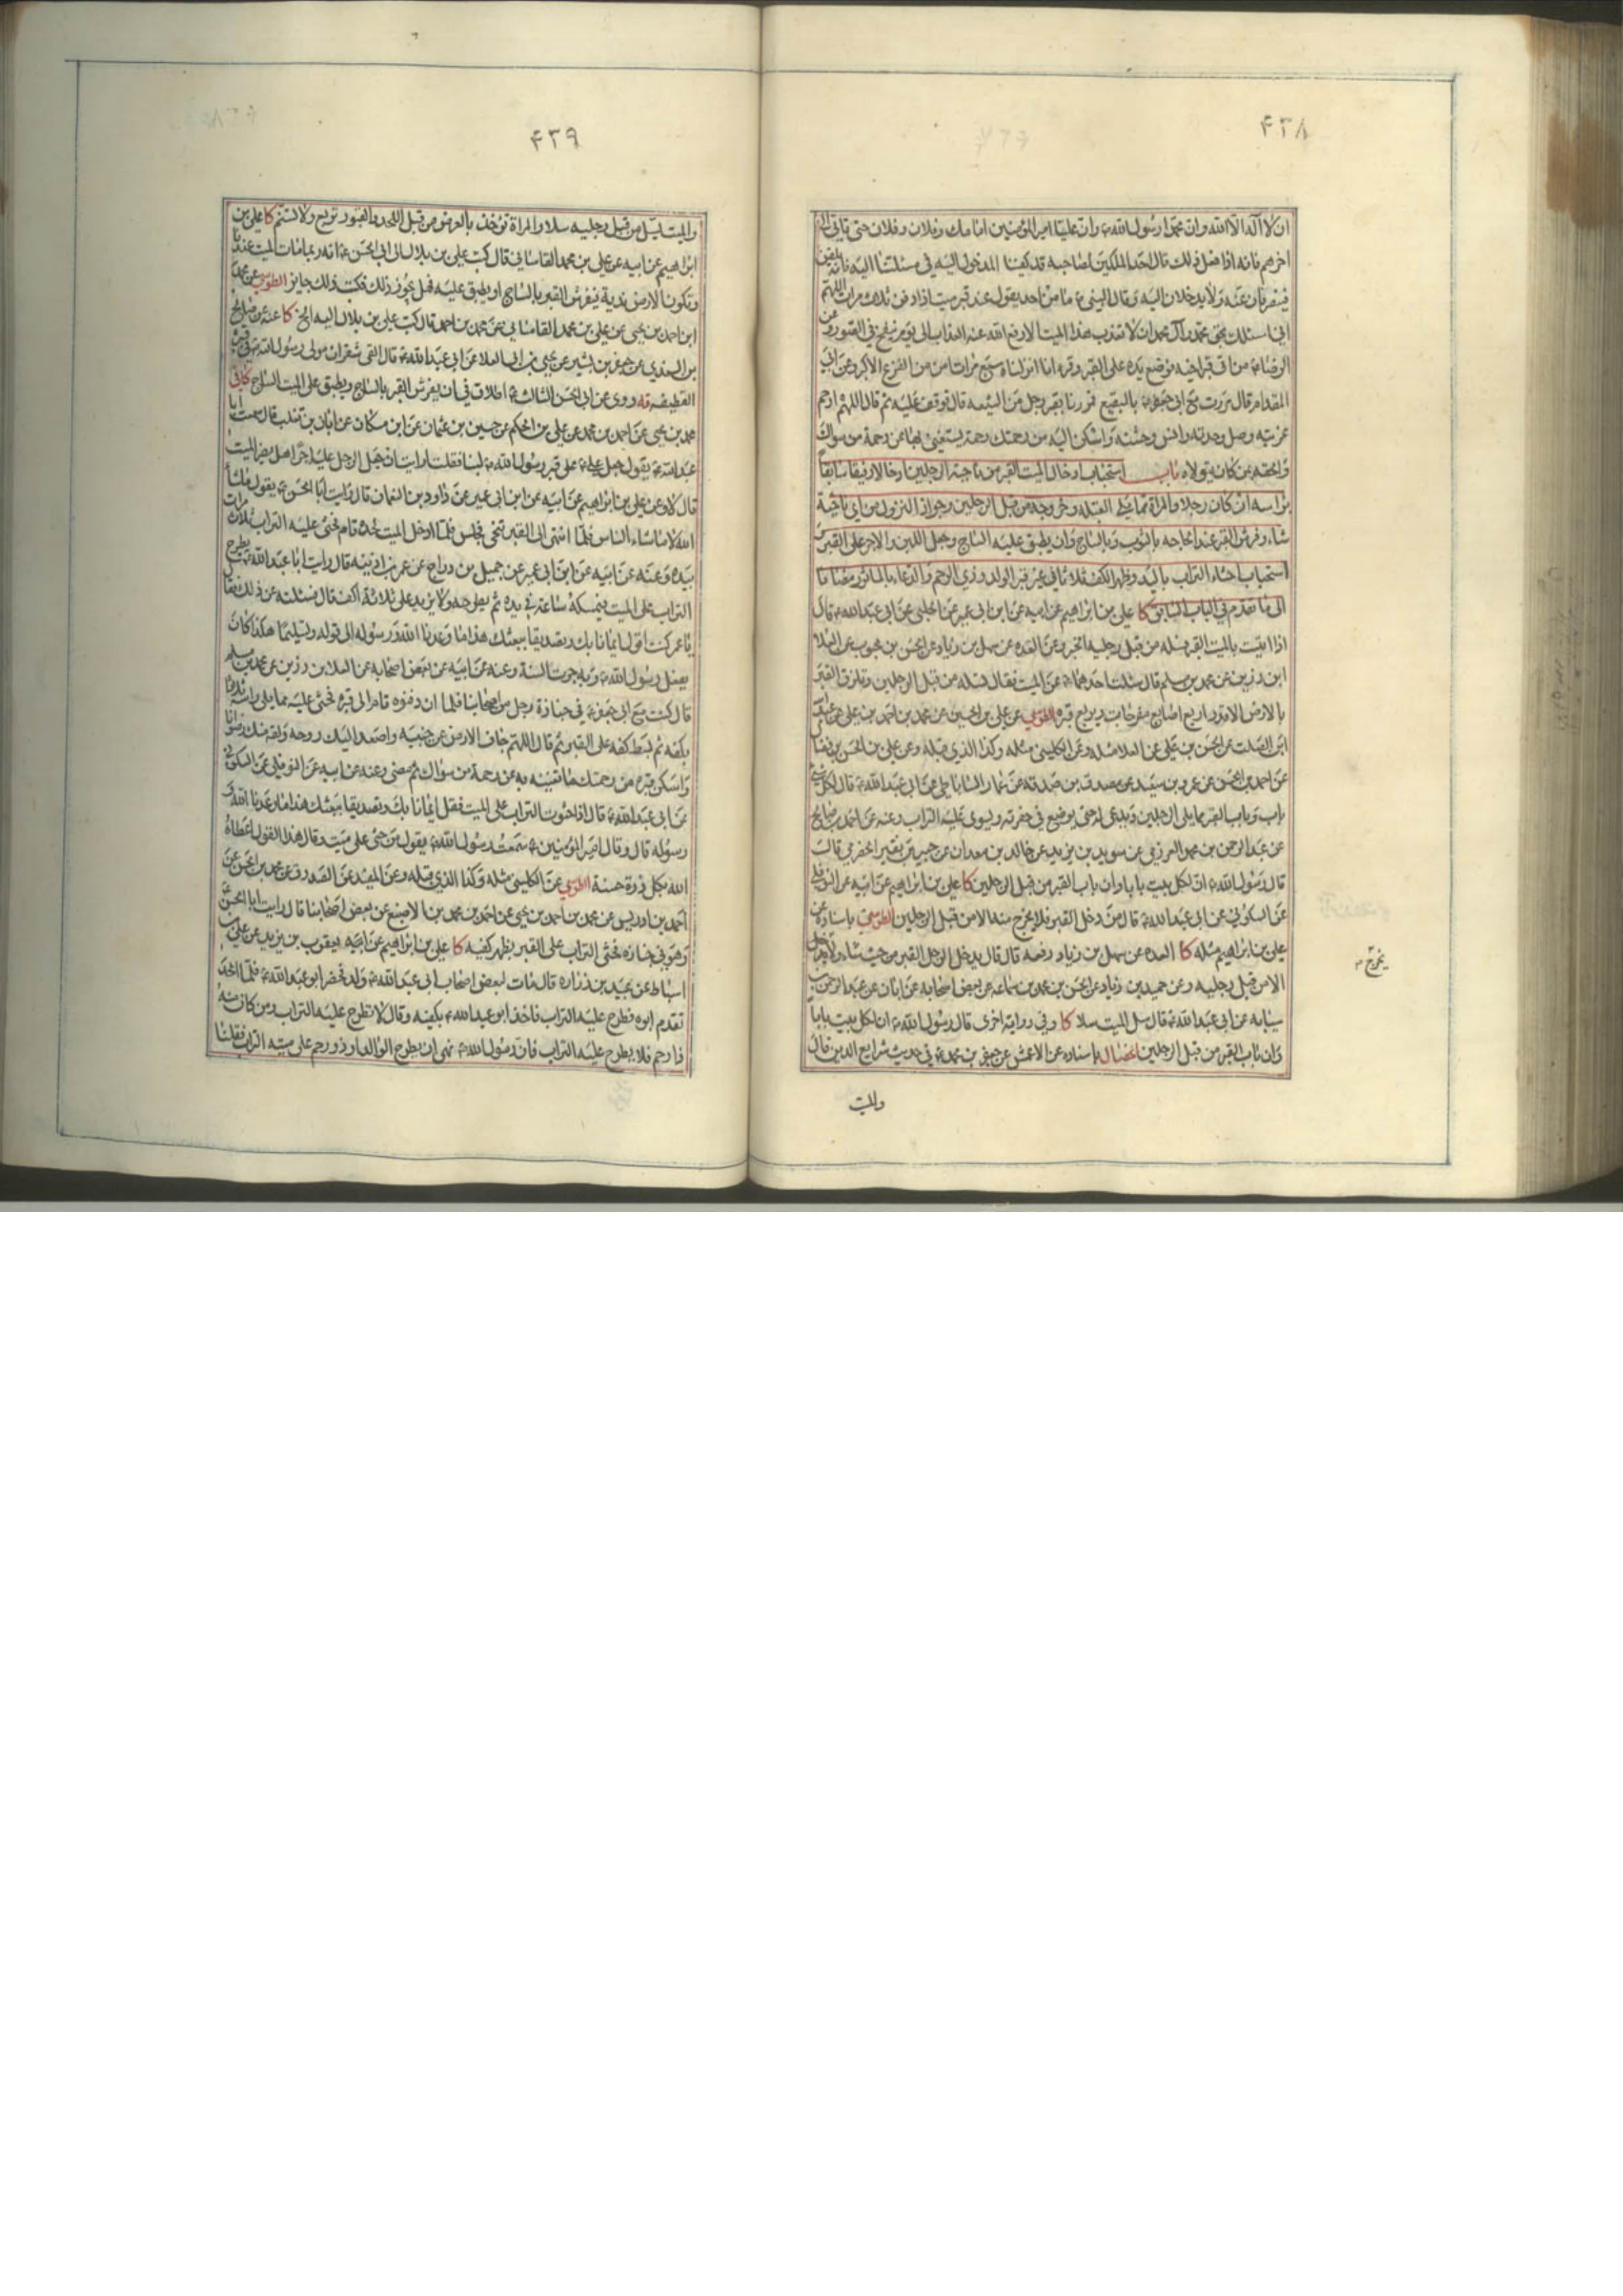 ۴۳۸
ان لا اله الا الله وان محمدا رسول الله وان عليا امير المؤمنين امامك وفلان وفلان حتى تاتى الى
اخرهم فانه اذا فعل ذلك قال احد الملكين لصاحبه قد كفينا الدخول اليه فى مسئلتنا اليه فانه يلقن
فينصرفان عنه ولا يدخلان اليه وقال النبى ما من احد يقول عند قبر ميت اذا دفن ثلاث مرات اللهم
انى اسئلك بحق محمد وآل محمد ان لا تعذب هذا الميت الا رفع الله عنه العذاب الى يوم ينفخ فى الصور وعن
الرضا من اتى قبر اخيه فوضع يده على القبر وقرء انا انزلناه سبع مرات امن من الفزع الاكبر وعن ابى
المقدام قال مررت مع ابى جعفر بالبقيع فمررنا بقبر رجل من الشيعه قال فوقف عليه ثم قال اللهم ارحم
غربته وصل وحدته وانس وحشته واسكن اليه من رحمتك رحمة يستغنى بها عن رحمة من سواك
والحقه بمن كان يتولاه باب استحباب ادخال الميت القبر من ناحية الرجلين ادخالا رفيقا سابقا
براسه ان كان رجلا والمراة مما يلى القبلة وخروجه من قبل الرجلين وجواز النزول من اى ناحية
شاء وفرش القبر عند الحاجه بالثوب وبالساج وان يطبق عليه الساج وجعل اللبن والاجر على القبر و
استحباب حثاء التراب باليد وظهر الكف ثلاثا فى غير قبر الولد وذى الرحم والدعاء بالماثور مضافا
الى ما تقدم فى الباب السابق كا على بن ابراهيم عن ابيه عن ابن ابى عمير عن الحلبى عن ابى عبد الله قال
اذا اتيت بالميت القبر فسله من قبل رجليه الخبر وعن العده عن سهل بن زياد عن الحسن بن محبوب عن العلا
ابن رزين عن محمد بن مسلم قال سئلت احدهما عن الميت فقال تسله من قبل الرجلين وتلزق القبر
بالارض الا قدر اربع اصابع مفرجات وتربع قبره الطوسي عن على بن الحسين عن محمد بن احمد بن على عن عبد الله
ابن الصلت عن الحسن بن على عن العلا مثله وعن الكلينى مثله وكذا الذى قبله وعن على بن الحسن بن فضال
عن احمد بن الحسن عن عمرو بن سعيد عن مصدق بن صدقه عن عمار الساباطى عن ابى عبد الله قال لكل شئ
باب وباب القبر مما يلى الرجلين يوضع فى حفرته ويسوى عليه التراب وعنه عن احمد بن صالح
عن عبد الرحمن بن محمد العرزمى عن سويد بن يزيد عن خالد بن معدان عن جبير بن نفير الحضرمى قال
قال رسول الله ان لكل بيت بابا وان باب القبر من قبل الرجلين كا على بن ابراهيم عن ابيه عن النوفلى
عن السكونى عن ابى عبد الله قال من دخل القبر فلا يخرج منه الا من قبل الرجلين الطوسى باسناده عن
على بن ابراهيم مثله كا العده عن سهل بن زياد رفعه قال قال يدخل الرجل القبر من حيث شاء ولا يخرج
الا من قبل رجليه وعن حميد بن زياد عن الحسن بن محمد بن سماعه عن بعض اصحابه عن ابان عن عبد الرحمن بن
سيابه عن ابى عبد الله قال سل الميت سلا كا وفى رواية اخرى قال رسول الله ان لكل بيت بابا
وان باب القبر من قبل الرجلين الخصال باسناده عن الاعمش عن جعفر بن محمد فى حديث شرايع الدين قال
يخرج
والميت
۴۳۹
والميت يسل من قبل رجليه سلا والمراة تؤخذ بالعرض من قبل اللحد والقبور تربع ولا تسنم كا على بن
ابراهيم عن ابيه عن على بن محمد القاسانى قال كتب على بن بلال الى ابى الحسن انه ربما مات الميت عندنا
وتكون الارض ندية فنفرش القبر بالساج او يطبق عليه فهل يجوز ذلك فكتب ذلك جايز الطوسي عن محمد
ابن احمد بن يحيى عن على بن محمد القاسانى عن محمد بن احمد قال كتب على بن بلال اليه الخ كا عنه عن صالح
بن السندي عن جعفر بن بشير عن يحيى بن ابى العلا عن ابى عبد الله قال القى شقران مولى رسول الله فى قبره
القطيفه قه روى عن ابى الحسن الثالث اطلاق فى ان يفرش القبر بالساج ويطبق على الميت الساج كافى
محمد بن يحيى عن احمد بن محمد عن على بن الحكم عن حسين بن عثمان عن ابن مسكان عن ابان بن تغلب قال سمعت ابا
عبد الله يقول جعل على على قبر رسول الله لبنا فقلت ارايت ان جعل الرجل عليه اجرا هل يضر الميت
قال لا وعن على بن ابراهيم عن ابيه عن ابن ابى عمير عن داود بن النعمان قال رايت ابا الحسن يقول ما شاء
الله لا ما شاء الناس فلما انتهى الى القبر تنحى فجلس فلما ادخل الميت لحده قام فحثى عليه التراب ثلاث مرات
بيده وعنه عن ابيه عن ابن ابى عمير عن جميل بن دراج عن عمر بن اذينه قال رايت ابا عبد الله يطرح
التراب على الميت فيمسكه ساعة فى يده ثم يطرحه ولا يزيد على ثلاثة اكف قال فسئلته عن ذلك فقال
يا عمر كنت اقول ايمانا بك وتصديقا ببعثك هذا ما وعدنا الله ورسوله الى قوله وتسليما هكذا كان
يفعل رسول الله وبه جرت السنة وعنه عن ابيه عن بعض اصحابه عن العلا بن رزين عن محمد بن مسلم
قال كنت مع ابى جعفر فى جنازة رجل من اصحابنا فلما ان دفنوه قام الى قبره فحثى عليه مما يلى راسه ثلاثا
بكفه ثم بسط كفه على القبر ثم قال اللهم جاف الارض عن جنبيه واصعد اليك روحه ولقه منك رضوانا
واسكن قبره من رحمتك ما تغنيه به عن رحمة من سواك ثم مضى وعنه عن ابيه عن النوفلى عن السكونى
عن ابى عبد الله قال اذا حثوت التراب على الميت فقل ايمانا بك وتصديقا ببعثك هذا ما وعدنا الله و
رسوله قال وقال امير المؤمنين سمعت رسول الله يقول من حثى على ميت وقال هذا القول اعطاه
الله بكل ذرة حسنة الطوسي عن الكلينى مثله وكذا الذى قبله وعن المفيد عن الصدوق عن محمد بن الحسن عن
احمد بن ادريس عن محمد بن احمد بن يحيى عن احمد بن محمد بن الاصبغ عن بعض اصحابنا قال رايت ابا الحسن
وهو فى جنازه فحثى التراب على القبر بظهر كفيه كا على بن ابراهيم عن ابيه يعقوب بن يزيد عن على بن
اسباط عن عبيد بن زراره قال مات لبعض اصحاب ابى عبد الله ولد فحضر ابو عبد الله فلما الحد
تقدم ابوه فطرح عليه التراب فاخذ ابو عبد الله بكفيه وقال لا تطرح عليه التراب ومن كان منه
ذا رحم فلا يطرح عليه التراب فان رسول الله نهى ان يطرح الوالد او ذو رحم على ميته التراب فقلنا